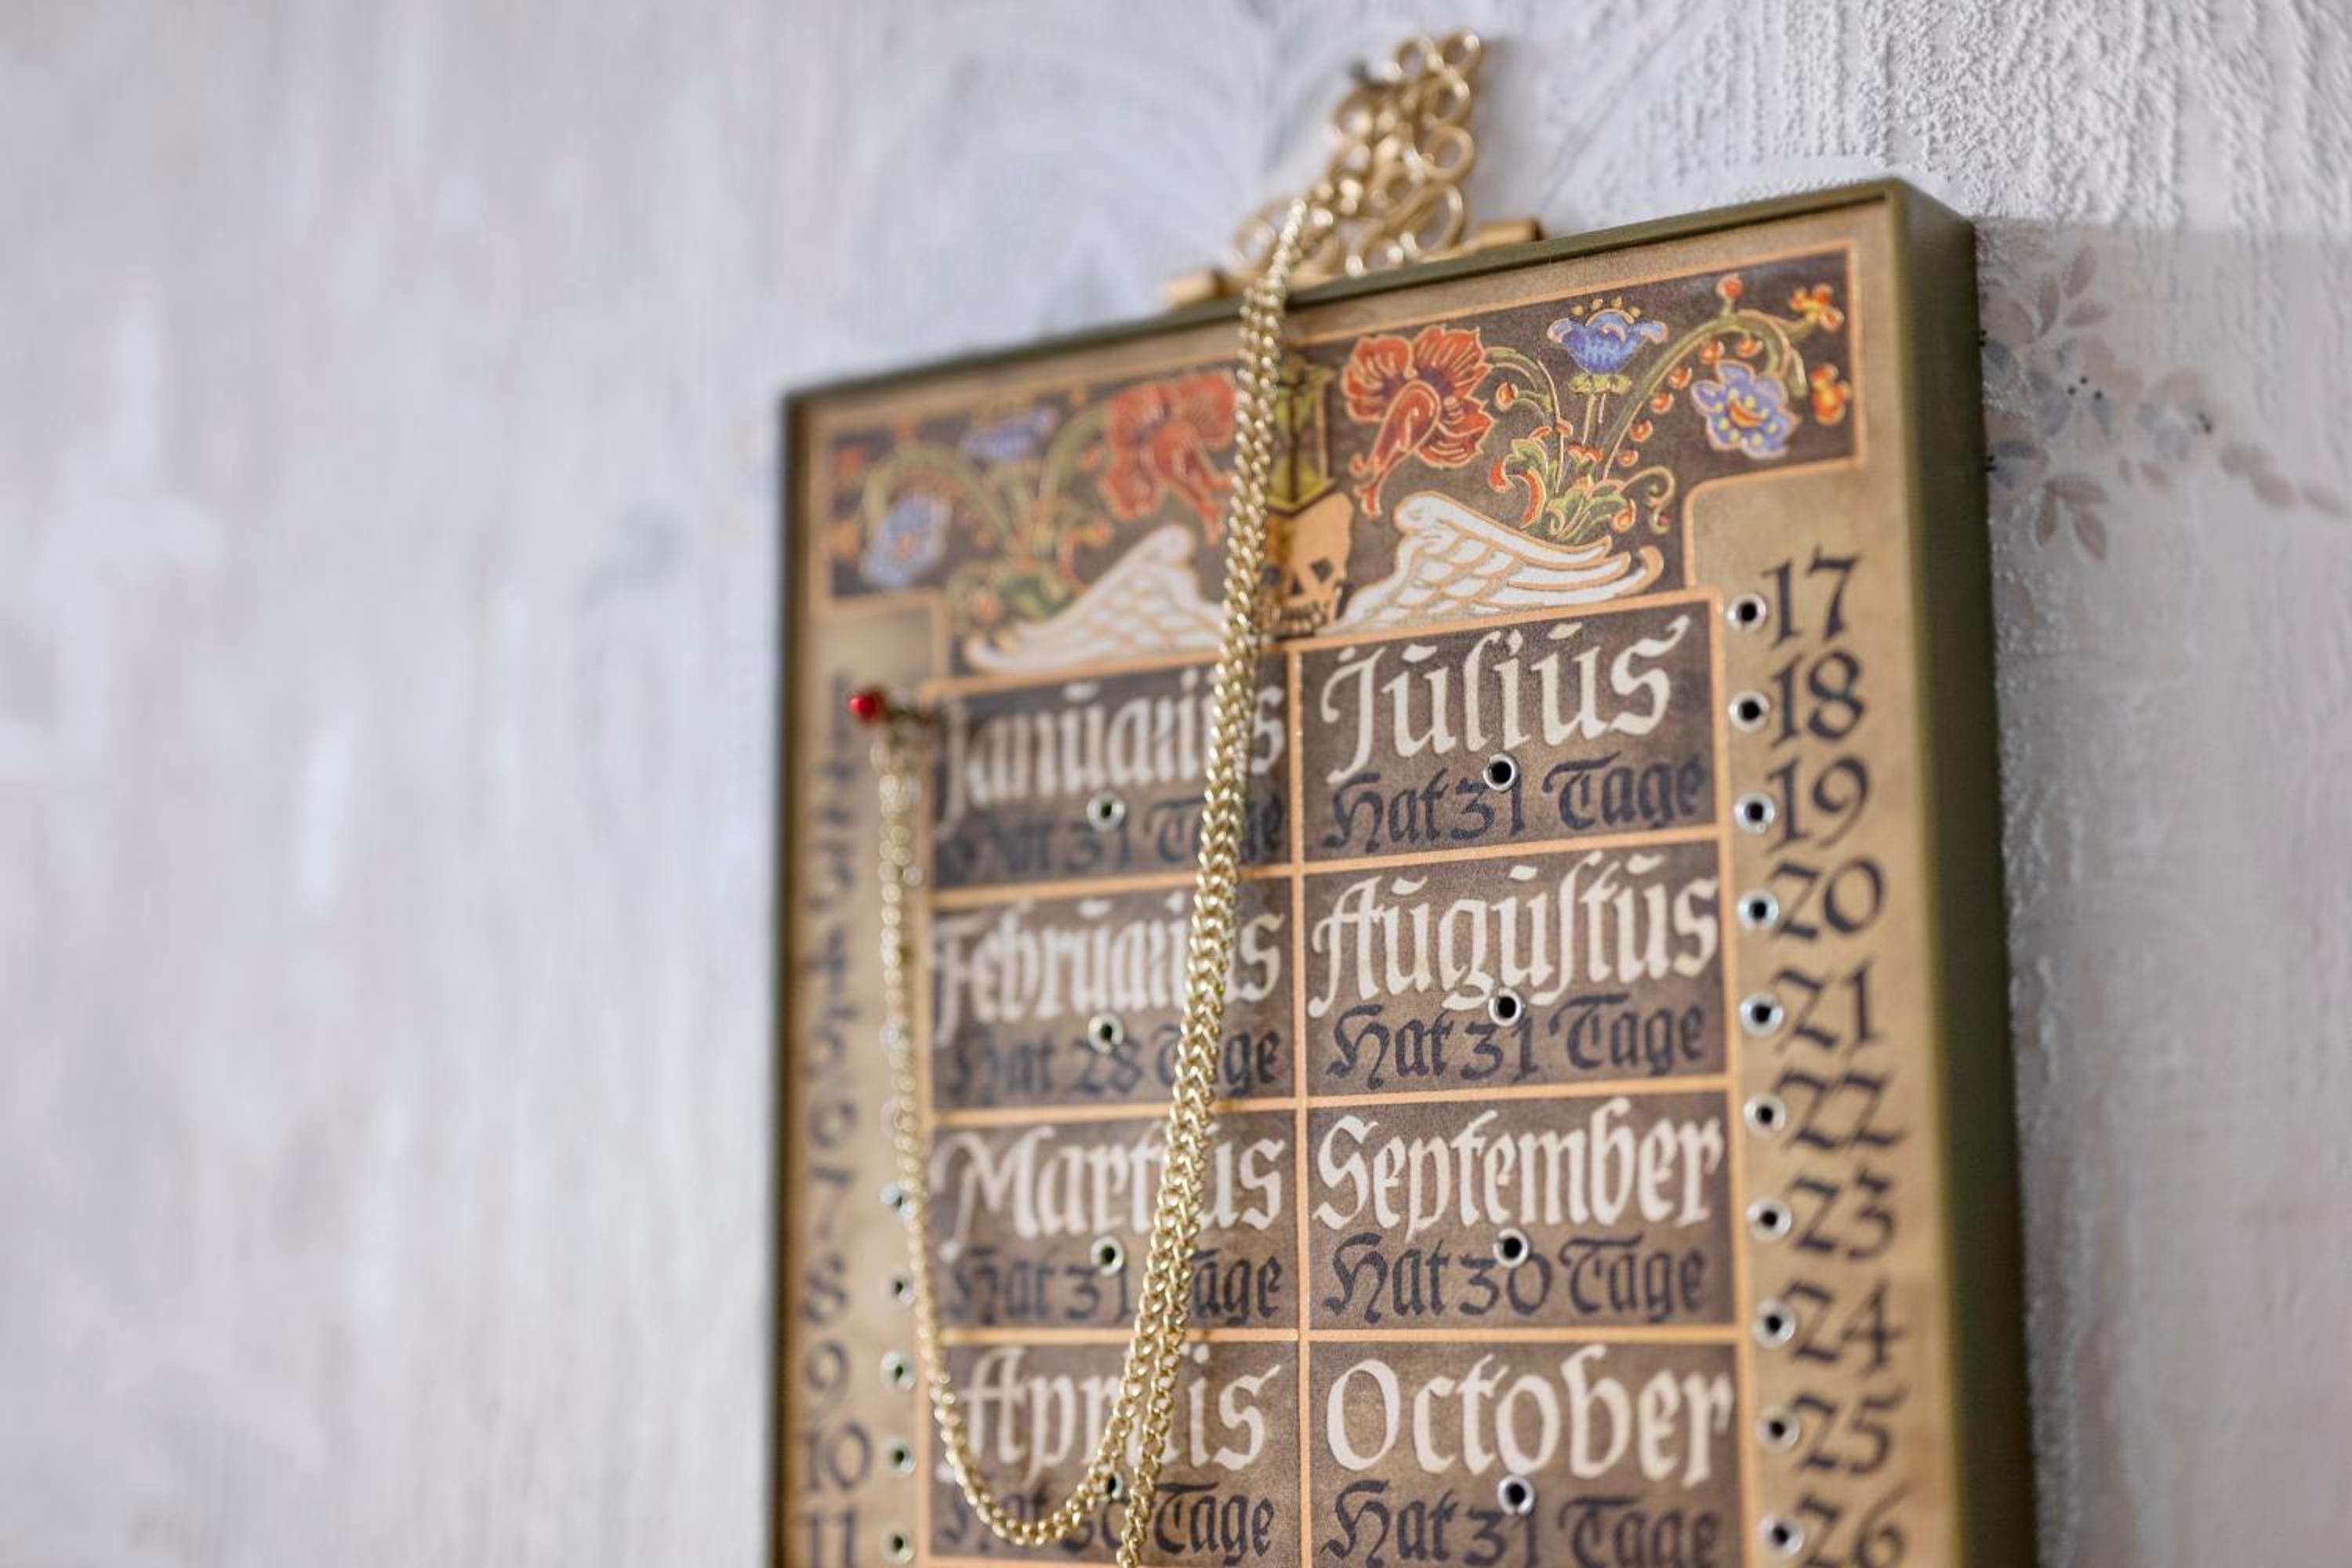 Januarius
Hat 31 Tage
Februarius
Hat 28 Tage
Martius
Hat 31 Tage
Aprilis
Hat 30 Tage
Julius
Hat 31 Tage
Auguſtus
Hat 31 Tage
September
Hat 30 Tage
October
Hat 31 Tage
7
8
9
10
11
17
18
19
20
21
22
23
24
25
26